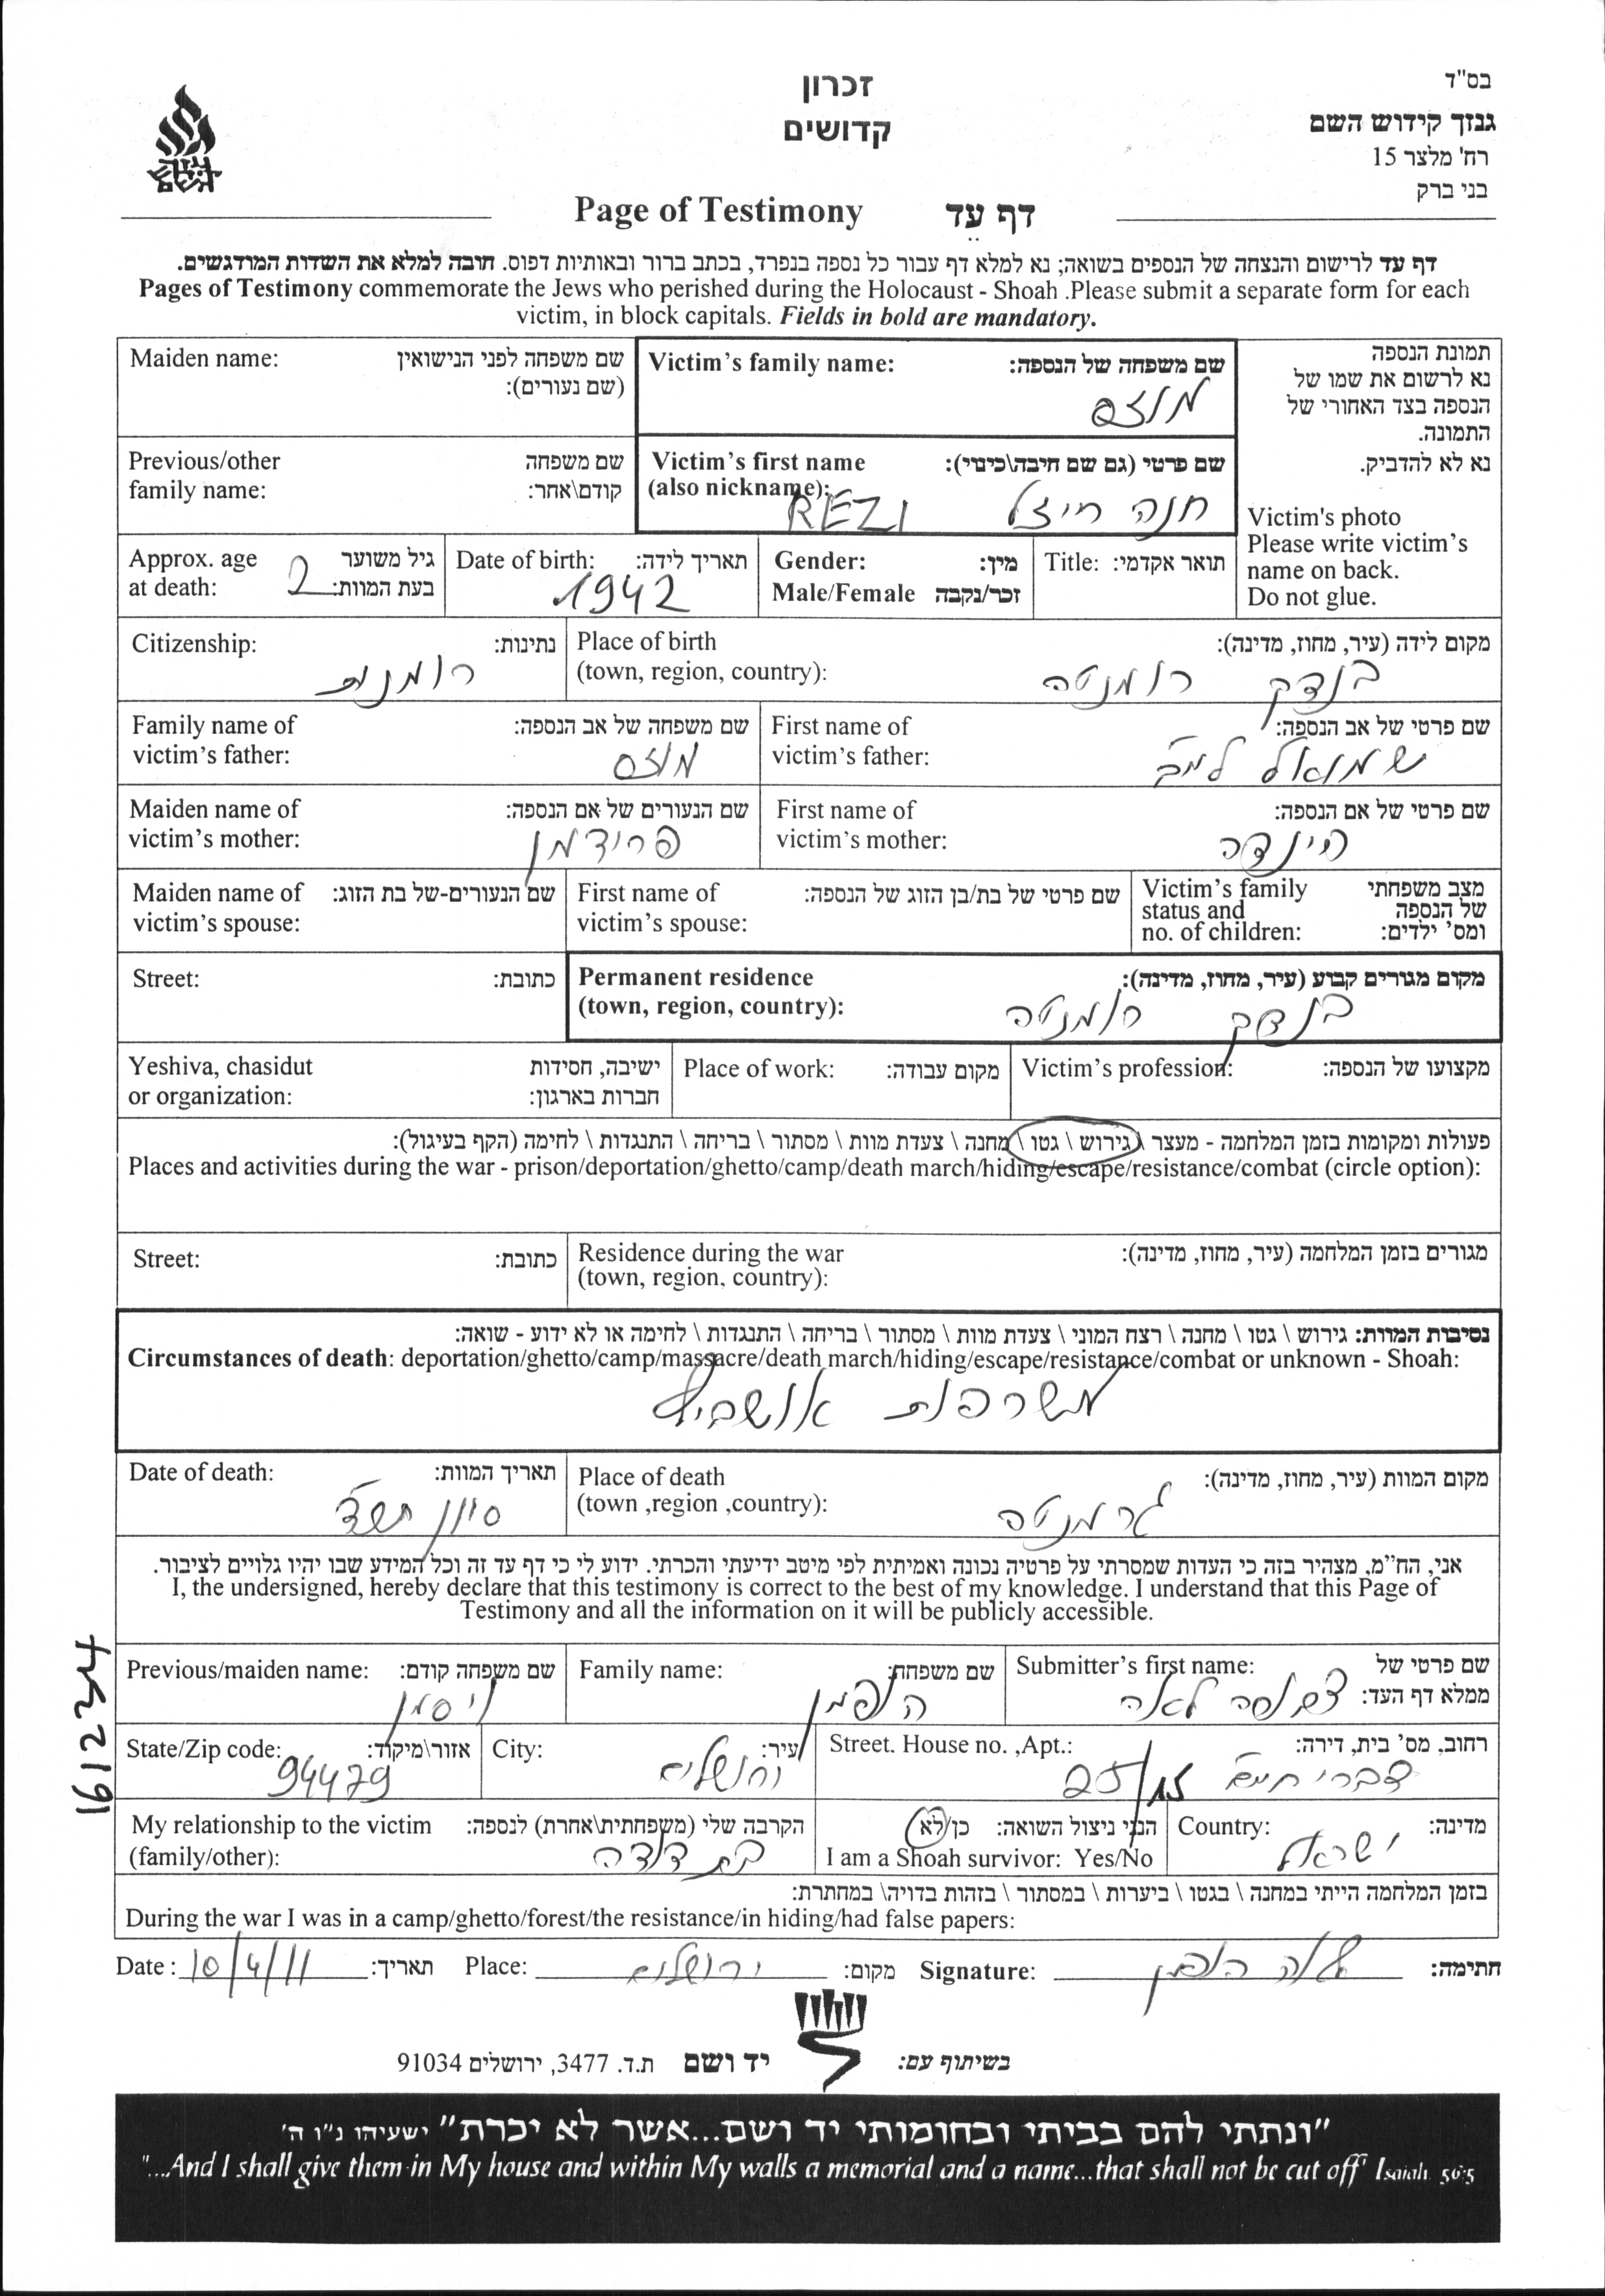 בס"ד
גנזך קידוש השם
רח' מלצר 15
בני ברק
זכרון
קדושים
Page of Testimony דף עֵד
דף עד לרישום והנצחה של הנספים בשואה; נא למלא דף עבור כל נספה בנפרד, בכתב ברור ובאותיות דפוס. חובה למלא את השדות המודגשים.
Pages of Testimony commemorate the Jews who perished during the Holocaust - Shoah .Please submit a separate form for each
victim, in block capitals. Fields in bold are mandatory.
תמונת הנספה
נא לרשום את שמו של
הנספה בצד האחורי של
התמונה.
נא לא להדביק.
Victim's photo
Please write victim's
name on back.
Do not glue.
Victim's family name: שם משפחה של הנספה:
מוזס
Maiden name: שם משפחה לפני הנישואין
(שם נעורים):
Victim's first name שם פרטי (גם שם חיבה\כינוי):
(also nickname):
חנה רייזל REZI
Previous/other שם משפחה
family name: קודם\אחר:
Title: תואר אקדמי:
Gender: מין:
Male/Female זכר/נקבה
Date of birth: תאריך לידה:
1942
Approx. age גיל משוער
at death: בעת המוות: 2
Place of birth מקום לידה (עיר, מחוז, מדינה):
(town, region, country):
בנדק רומניה
Citizenship: נתינות:
רומנית
First name of שם פרטי של אב הנספה:
victim's father:
שמואל לייב
Family name of שם משפחה של אב הנספה:
victim's father:
מוזס
First name of שם פרטי של אם הנספה:
victim's mother:
הינדה
Maiden name of שם הנעורים של אם הנספה:
victim's mother:
פרידמן
Victim's family מצב משפחתי
status and של הנספה
no. of children: ומס' ילדים:
First name of שם פרטי של בת/בן הזוג של הנספה:
victim's spouse:
Maiden name of שם הנעורים-של בת הזוג:
victim's spouse:
Permanent residence מקום מגורים קבוע (עיר, מחוז, מדינה):
(town, region, country):
בנדק רומניה
Street: כתובת:
Victim's profession: מקצועו של הנספה:
Place of work: מקום עבודה:
Yeshiva, chasidut ישיבה, חסידות
or organization: חברות בארגון:
פעולות ומקומות בזמן המלחמה - מעצר \ גירוש \ גטו \ מחנה \ צעדת מוות \ מסתור \ בריחה \ התנגדות \ לחימה (הקף בעיגול):
Places and activities during the war - prison/deportation/ghetto/camp/death march/hiding/escape/resistance/combat (circle option):
Residence during the war מגורים בזמן המלחמה (עיר, מחוז, מדינה):
(town, region, country):
Street: כתובת:
נסיבות המוות: גירוש \ גטו \ מחנה \ רצח המוני \ צעדת מוות \ מסתור \ בריחה \ התנגדות \ לחימה או לא ידוע - שואה:
Circumstances of death: deportation/ghetto/camp/massacre/death march/hiding/escape/resistance/combat or unknown - Shoah:
משרפות אושביץ
Place of death מקום המוות (עיר, מחוז, מדינה):
(town ,region ,country):
גרמניה
Date of death: תאריך המוות:
סיון תש"ד
אני, הח"מ, מצהיר בזה כי העדות שמסרתי על פרטיה נכונה ואמיתית לפי מיטב ידיעתי והכרתי. ידוע לי כי דף עד זה וכל המידע שבו יהיו גלויים לציבור.
I, the undersigned, hereby declare that this testimony is correct to the best of my knowledge. I understand that this Page of
Testimony and all the information on it will be publicly accessible.
Submitter's first name: שם פרטי של
ממלא דף העד:
לאה
Family name: שם משפחה:
הופמן
Previous/maiden name: שם משפחה קודם:
ויסמן
Street. House no. ,Apt.: רחוב, מס' בית, דירה:
דברי חיים 25/
City: עיר:
ירושלים
State/Zip code: אזור\מיקוד:
94479
Country: מדינה:
ישראל
הנני ניצול השואה: כן/לא
I am a Shoah survivor: Yes/No
My relationship to the victim הקרבה שלי (משפחתית\אחרת) לנספה:
(family/other):
בת דודה
בזמן המלחמה הייתי במחנה \ בגטו \ ביערות \ במסתור \ בזהות בדויה\ במחתרת:
During the war I was in a camp/ghetto/forest/the resistance/in hiding/had false papers:
Date : 10/4/11 תאריך: Place: ירושלים מקום: Signature: לאה הופמן חתימה:
161234
בשיתוף עם: יד ושם ת.ד. 3477, ירושלים 91034
"ונתתי להם בביתי ובחומותי יד ושם...אשר לא יכרת" ישעיהו נ"ו ה'
"...And I shall give them in My house and within My walls a memorial and a name...that shall not be cut off" Isaiah 56:5